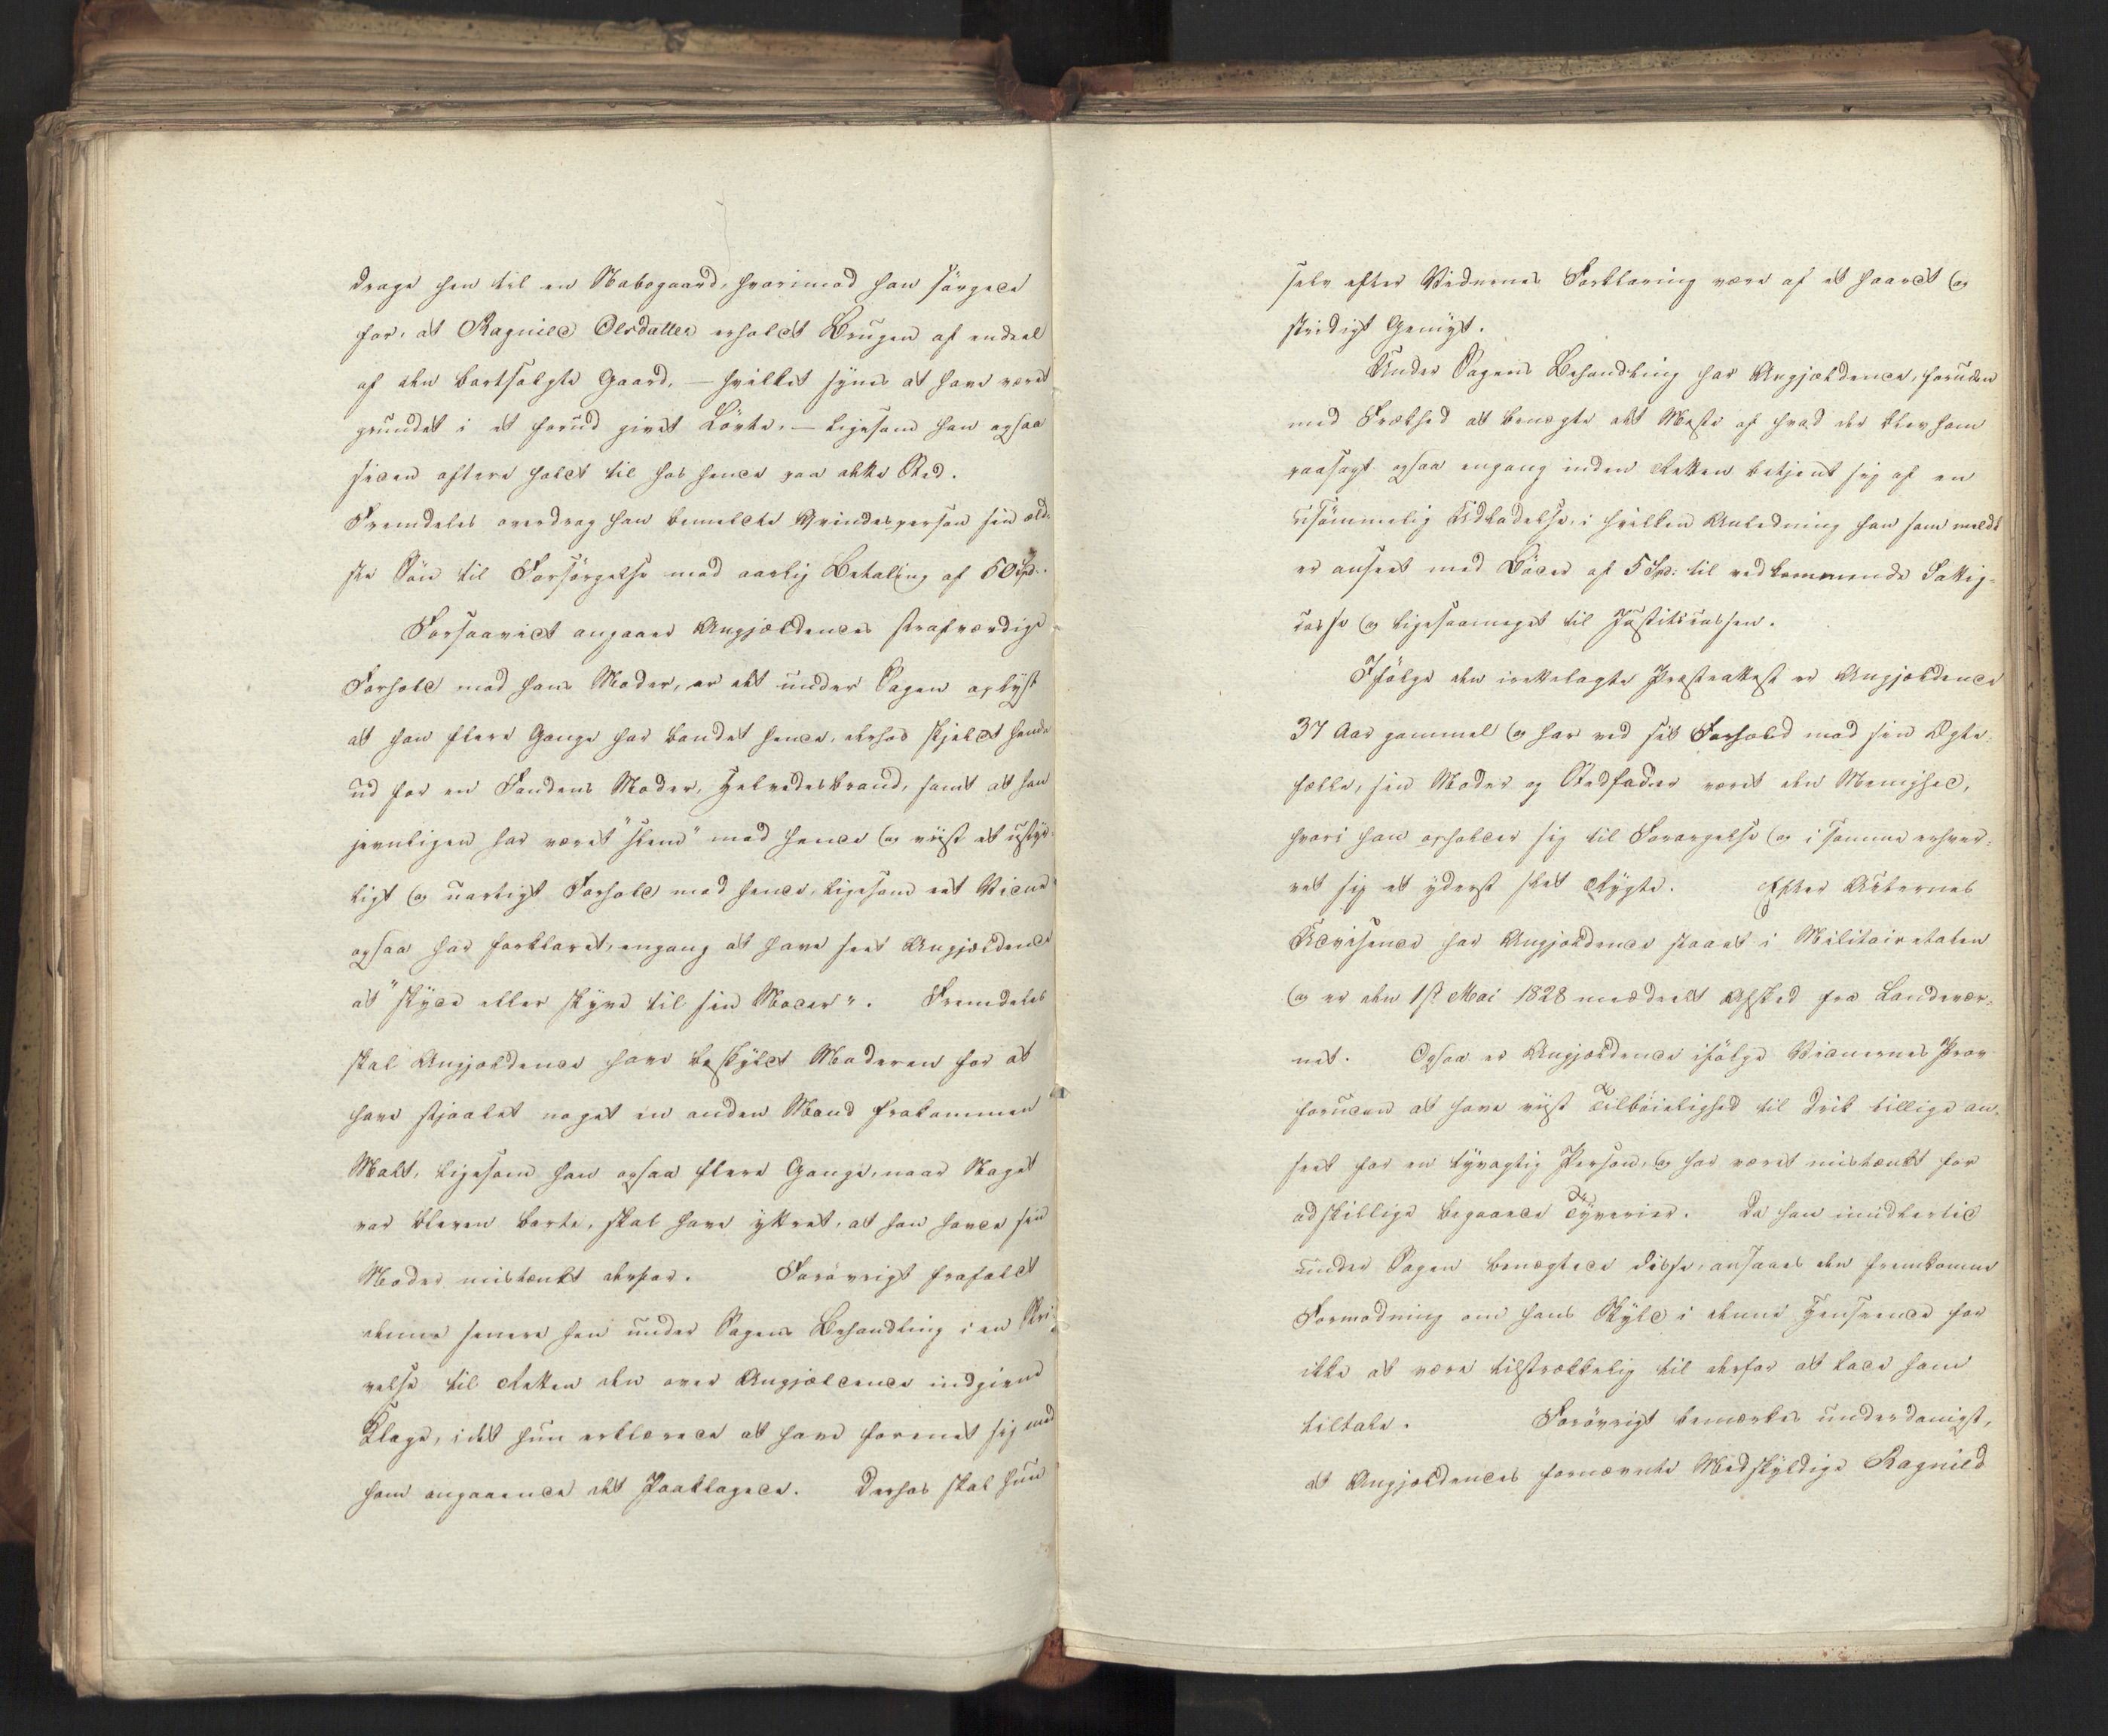 drage hen til en Nabogaard, hvorimod han sørgede
for, at Ragnild Olsdatter erholdt Brugen af endeel
af den bortsolgte Gaard, — hvilket synes at have været
grundet i et forud givet Løvte, — ligesom han ogsaa
siden oftere holdt til hos hende paa dette Sted.
Fremdeles overdrog han bemeldte Qvindesperson sin æld-
ste Søn til Forsørgelse mod aarlig Betaling af 50 Spd:.
Forsaavidt angaaer Angjældendes strafværdige
Forhold mod hans Moder, er det under Sagen oplyst
at han flere Gange har bandet hende, derhos skjeldt hende
ud for en Fandens Moder, Helvedesbrand, samt at han
jevnligen har været "slem" mod hende og viist et ustyr-
ligt og uartigt Forhold mod hende, ligesom eet Vidne
ogsaa har forklaret, engang at have seet Angjældende
at "skyde eller skyve til sin Moder". Fremdeles
skal Angjældende have beskyldt Moderen for at
have stjaalet noget en anden Mand frakommen
Malt, ligesom han ogsaa flere Gange, naar Noget
var bleven borte, skal have yttret, at han havde sin
Moder mistænkt derfor. Forøvrigt frafaldt
denne senere hen under Sagens Behandling i en Skri-
velse til Retten den over Angjældende indgivne
Klage, idet hun erklærede at have forenet sig med
ham angaaende det Paaklagede. Derhos skal hun
selv efter Vidnernes Forklaring være af et haardt og
stridigt Gemyt.
Under Sagens Behandling har Angjældende, foruden
med Frækhed at benægte det Meste af hvad der blev ham
paasagt ogsaa engang inden Retten betjent sig af en
usømmelig Udladelse, i hvilken Anledning han som meldt
er anseet med Bøder af 5 Spd: til vedkommende Fattig-
casse og ligesaameget til Justitscassen.
Ifølge den irettelagte Præsteattest er Angjældende
37 Aar gammel og har ved sit Forhold mod sin Ægte-
fælle, sin Moder og Stedfader været den Menighed,
hvori han opholder sig til Forargelse og i samme erhver-
vet sig et yderst slet Rygte. Efter Acternes
Udvisende har Angjældende staaet i Militairetaten
og er den 1ste Mai 1828 meddeelt Afsked fra Landevær-
net. Ogsaa er Angjældende ifølge Vidnernes Prov
foruden at have viist Tilbøielighed til Drik tillige an-
seet for en tyvagtig Person, og har været mistænkt for
adskillige begaaede Tyverier. Da han imidlertid
under Sagen benægtede disse, ansaaes den fremkomne
Formodning om hans Skyld i denne Henseende for
ikke at være tilstrækkelig til derfor at lade ham
tiltale. Forøvrigt bemærkes underdanigst,
at Angjældendes fornævnte Medskyldige Ragnild